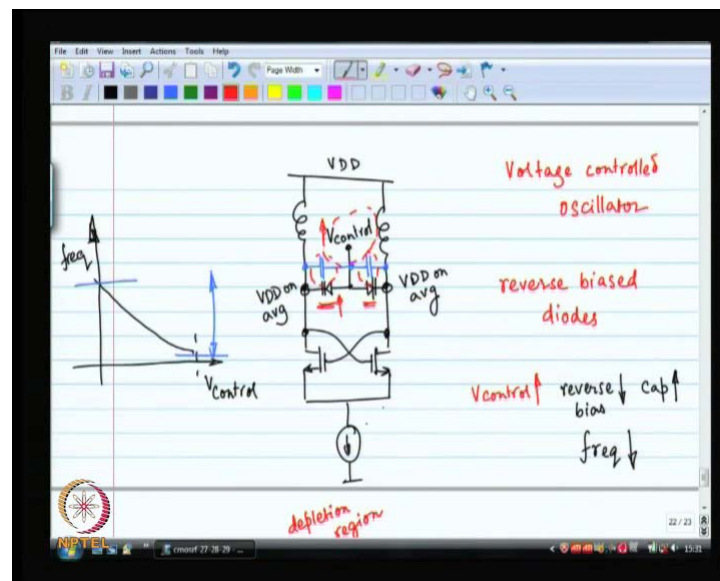 File Edit View Insert Actions Tools Help
Page Width
B I
VDD
Voltage controlled
oscillator
freq
Vcontrol
VDD on
avg
VDD on
avg
reverse biased
diodes
Vcontrol
Vcontrol↑ reverse↓ cap↑
bias
freq↓
depletion
region
22 / 23
NPTEL
cmosrf-27-28-29 - ...
15:31